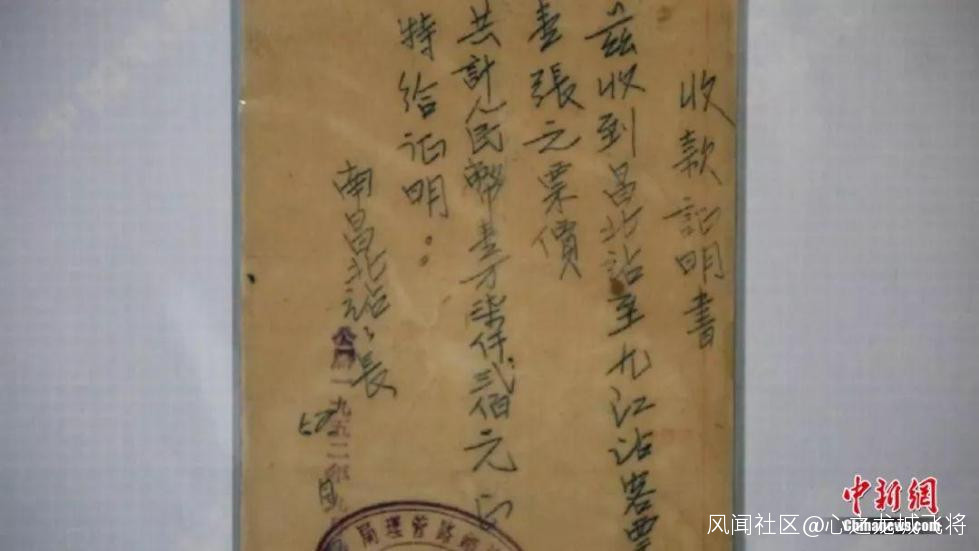 收款证明書
兹收到昌北站至九江站客票
壹張之票價
共計人民幣壹万柒仟弍佰元
特给证明。
南昌北站站長
公曆一九五二年
鐵路管理局
中新網
Chinanews.com
风闻社区@心之龙城飞将